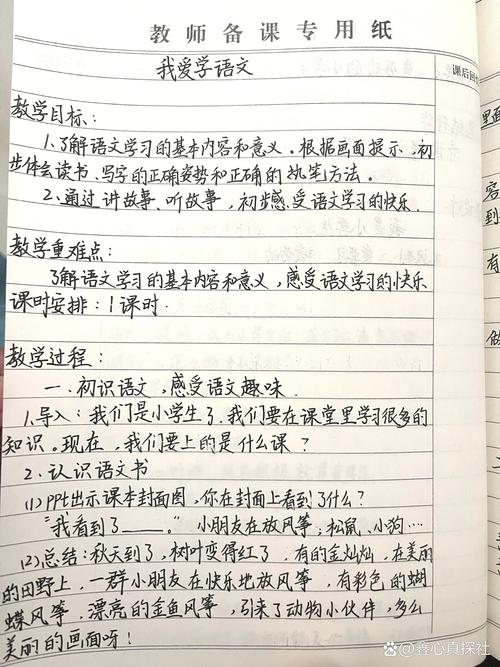 教师备课专用纸
课后回
我爱学语文
教学目标：
1.了解语文学习的基本内容和意义。根据画面提示，初
步体会读书、写字的正确姿势和正确的执笔方法。
2.通过讲故事、听故事，初步感受语文学习的快乐.
教学重难点：
了解语文学习的基本内容和意义，感受语文学习的快乐
课时安排：1课时.
教学过程：
一.初识语文，感受语文趣味.
1.导入：我们是小学生了.我们要在课堂里学习很多的
知识。现在，我们要上的是什么课？
2.认识语文书
(1)PPt出示课本封面图，你在封面上看到了什么？
“我看到了____。”小朋友在放风筝；松鼠、小狗…
(2)总结：秋天到了，树叶变得红了，有的金灿灿，在美丽
的田野上，一群小朋友在快乐地放风筝，有彩色的蝴
蝶风筝，漂亮的金鱼风筝，引来了动物小伙伴，多么
美丽的画面呀！
里面
容
到
做
鑫心真探社